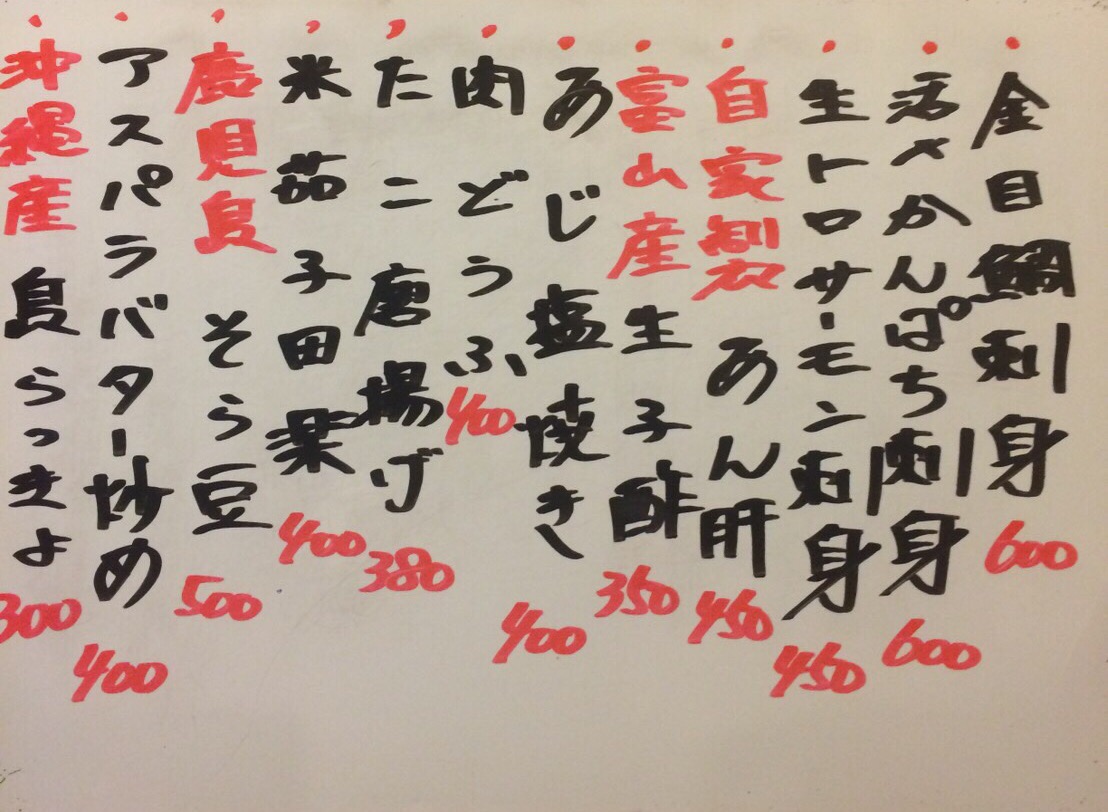 ・金目鯛刺身 600
・活〆かんぱち刺身 600
・生トロサーモン刺身 450
・自家製 あん肝 450
・富山産 生子酢 350
・あじ塩焼き 400
・肉どうふ 400
・たこ唐揚げ 380
・米茄子田楽 400
・鹿児島 そら豆 500
・アスパラバター炒め 400
・沖縄産 島らっきょ 300